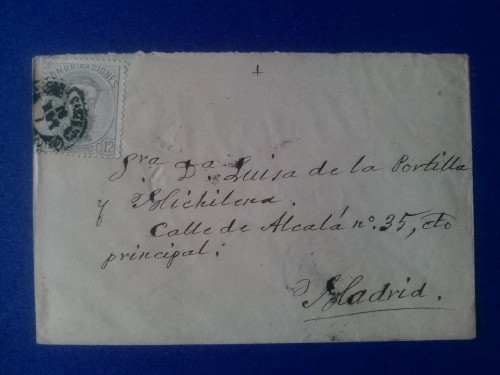 COMUNICACIONES
12
Sra. Da. Luisa de la Portilla
y Michilena.
Calle de Alcalá no. 35, cto
principal;
Madrid.